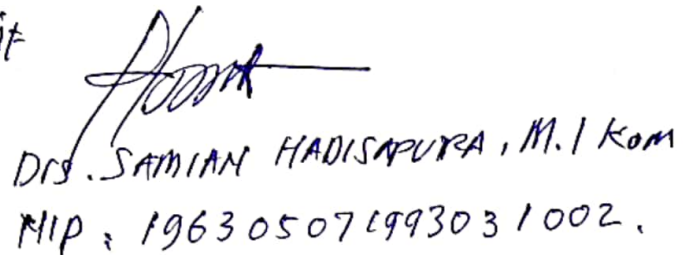 Drs. SAMIAN HADISAPURA, M.I Kom
NIP : 19630507 199303 1 002.